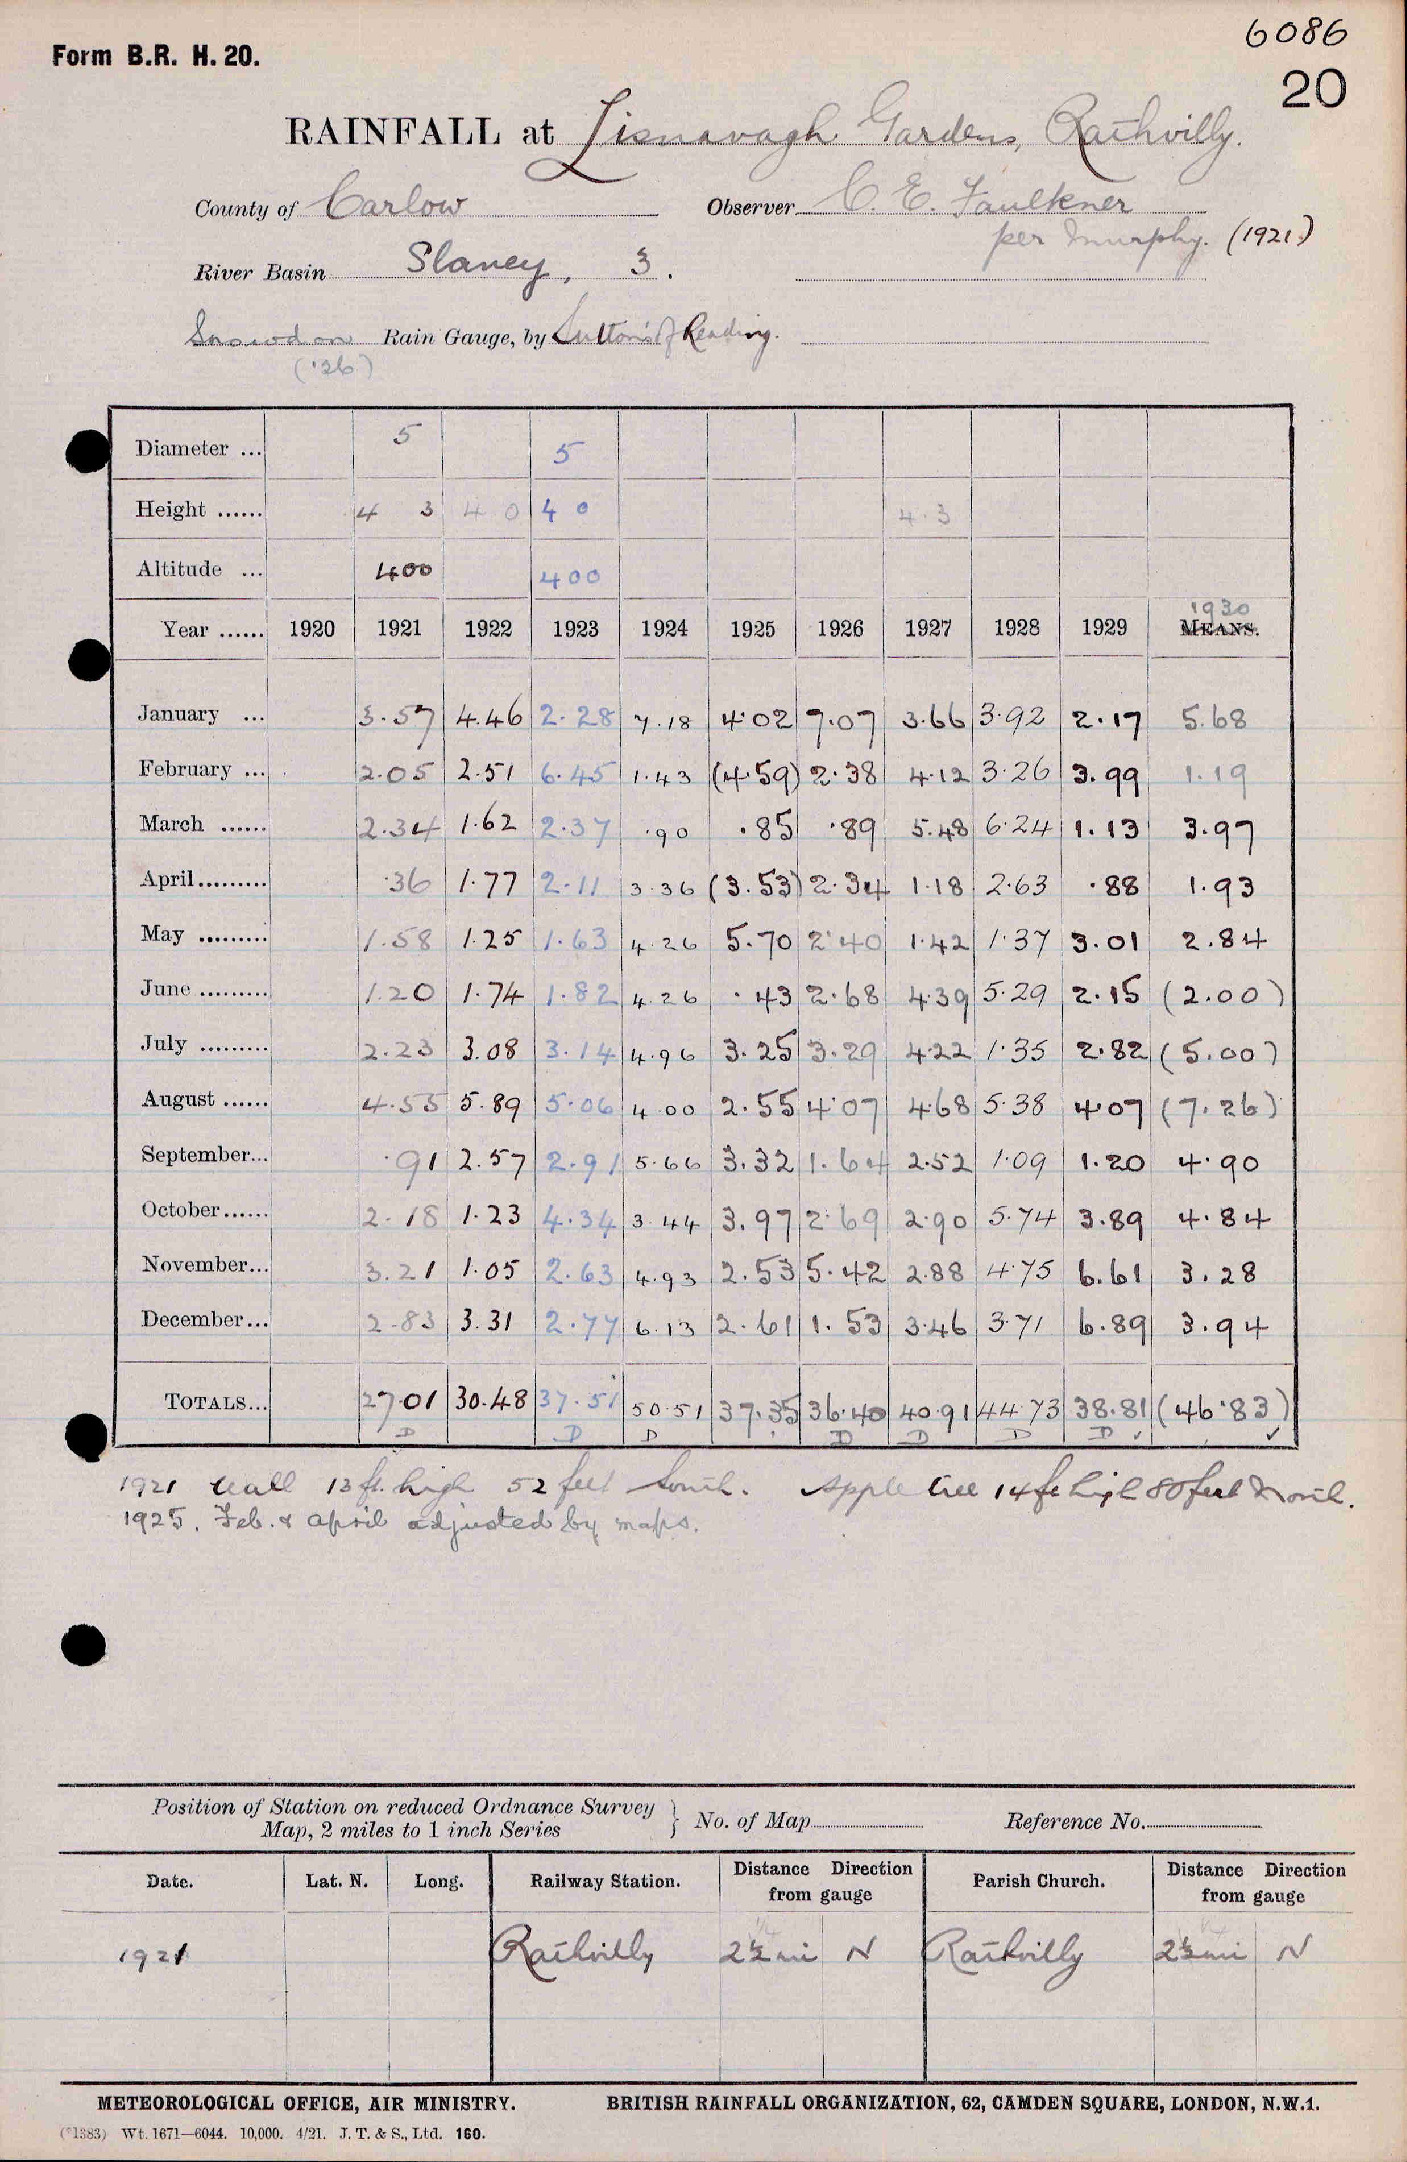 6086
Form B.R. H. 20.
20
RAINFALL at Lisnavagh Gardens, Rathvilly.
County of Carlow Observer C. E. Faulkner
per Murphy. (1921)
River Basin Slaney, 3.
Snowdon Rain Gauge, by Sutton's of Reading.
('26)
Diameter ... 5 5
Height ...... 4 3 4 0 4 0 4.3
Altitude ... 400 400
1930
Year ...... 1920 1921 1922 1923 1924 1925 1926 1927 1928 1929 MEANS.
January ... 3.57 4.46 2.28 7.18 4.02 7.07 3.66 3.92 2.17 5.68
February ... 2.05 2.51 6.45 1.43 (4.59) 2.38 4.12 3.26 3.99 1.19
March ...... 2.34 1.62 2.37 .90 .85 .89 5.48 6.24 1.13 3.97
April......... .36 1.77 2.11 3.36 (3.53) 2.34 1.18 2.63 .88 1.93
May ......... 1.58 1.25 1.63 4.26 5.70 2.40 1.42 1.37 3.01 2.84
June ......... 1.20 1.74 1.82 4.26 .43 2.68 4.39 5.29 2.15 (2.00)
July ......... 2.23 3.08 3.14 4.96 3.25 3.29 4.22 1.35 2.82 (5.00)
August ...... 4.55 5.89 5.06 4.00 2.55 4.07 4.68 5.38 4.07 (7.26)
September... .91 2.57 2.91 5.66 3.32 1.64 2.52 1.09 1.20 4.90
October...... 2.18 1.23 4.34 3.44 3.97 2.69 2.90 5.74 3.89 4.84
November... 3.21 1.05 2.63 4.93 2.53 5.42 2.88 4.75 6.61 3.28
December... 2.83 3.31 2.77 6.13 2.61 1.53 3.46 3.71 6.89 3.94
TOTALS... 27.01 30.48 37.51 50.51 37.35 36.40 40.91 44.73 38.81 (46.83)
D D D D D D D ✓ ✓
1921 Wall 13 ft. high 52 feet South. Apple tree 14 ft high 80 feet North.
1925. Feb. & April adjusted by maps.
Position of Station on reduced Ordnance Survey
Map, 2 miles to 1 inch Series } No. of Map Reference No.
Date. Lat. N. Long. Railway Station. Distance Direction from gauge Parish Church. Distance Direction from gauge
1921 Rathvilly 2½ mi N Rathvilly 2½ mi N
METEOROLOGICAL OFFICE, AIR MINISTRY. BRITISH RAINFALL ORGANIZATION, 62, CAMDEN SQUARE, LONDON, N.W.1.
(*1383) Wt. 1671—6044. 10,000. 4/21. J. T. & S., Ltd. 160.